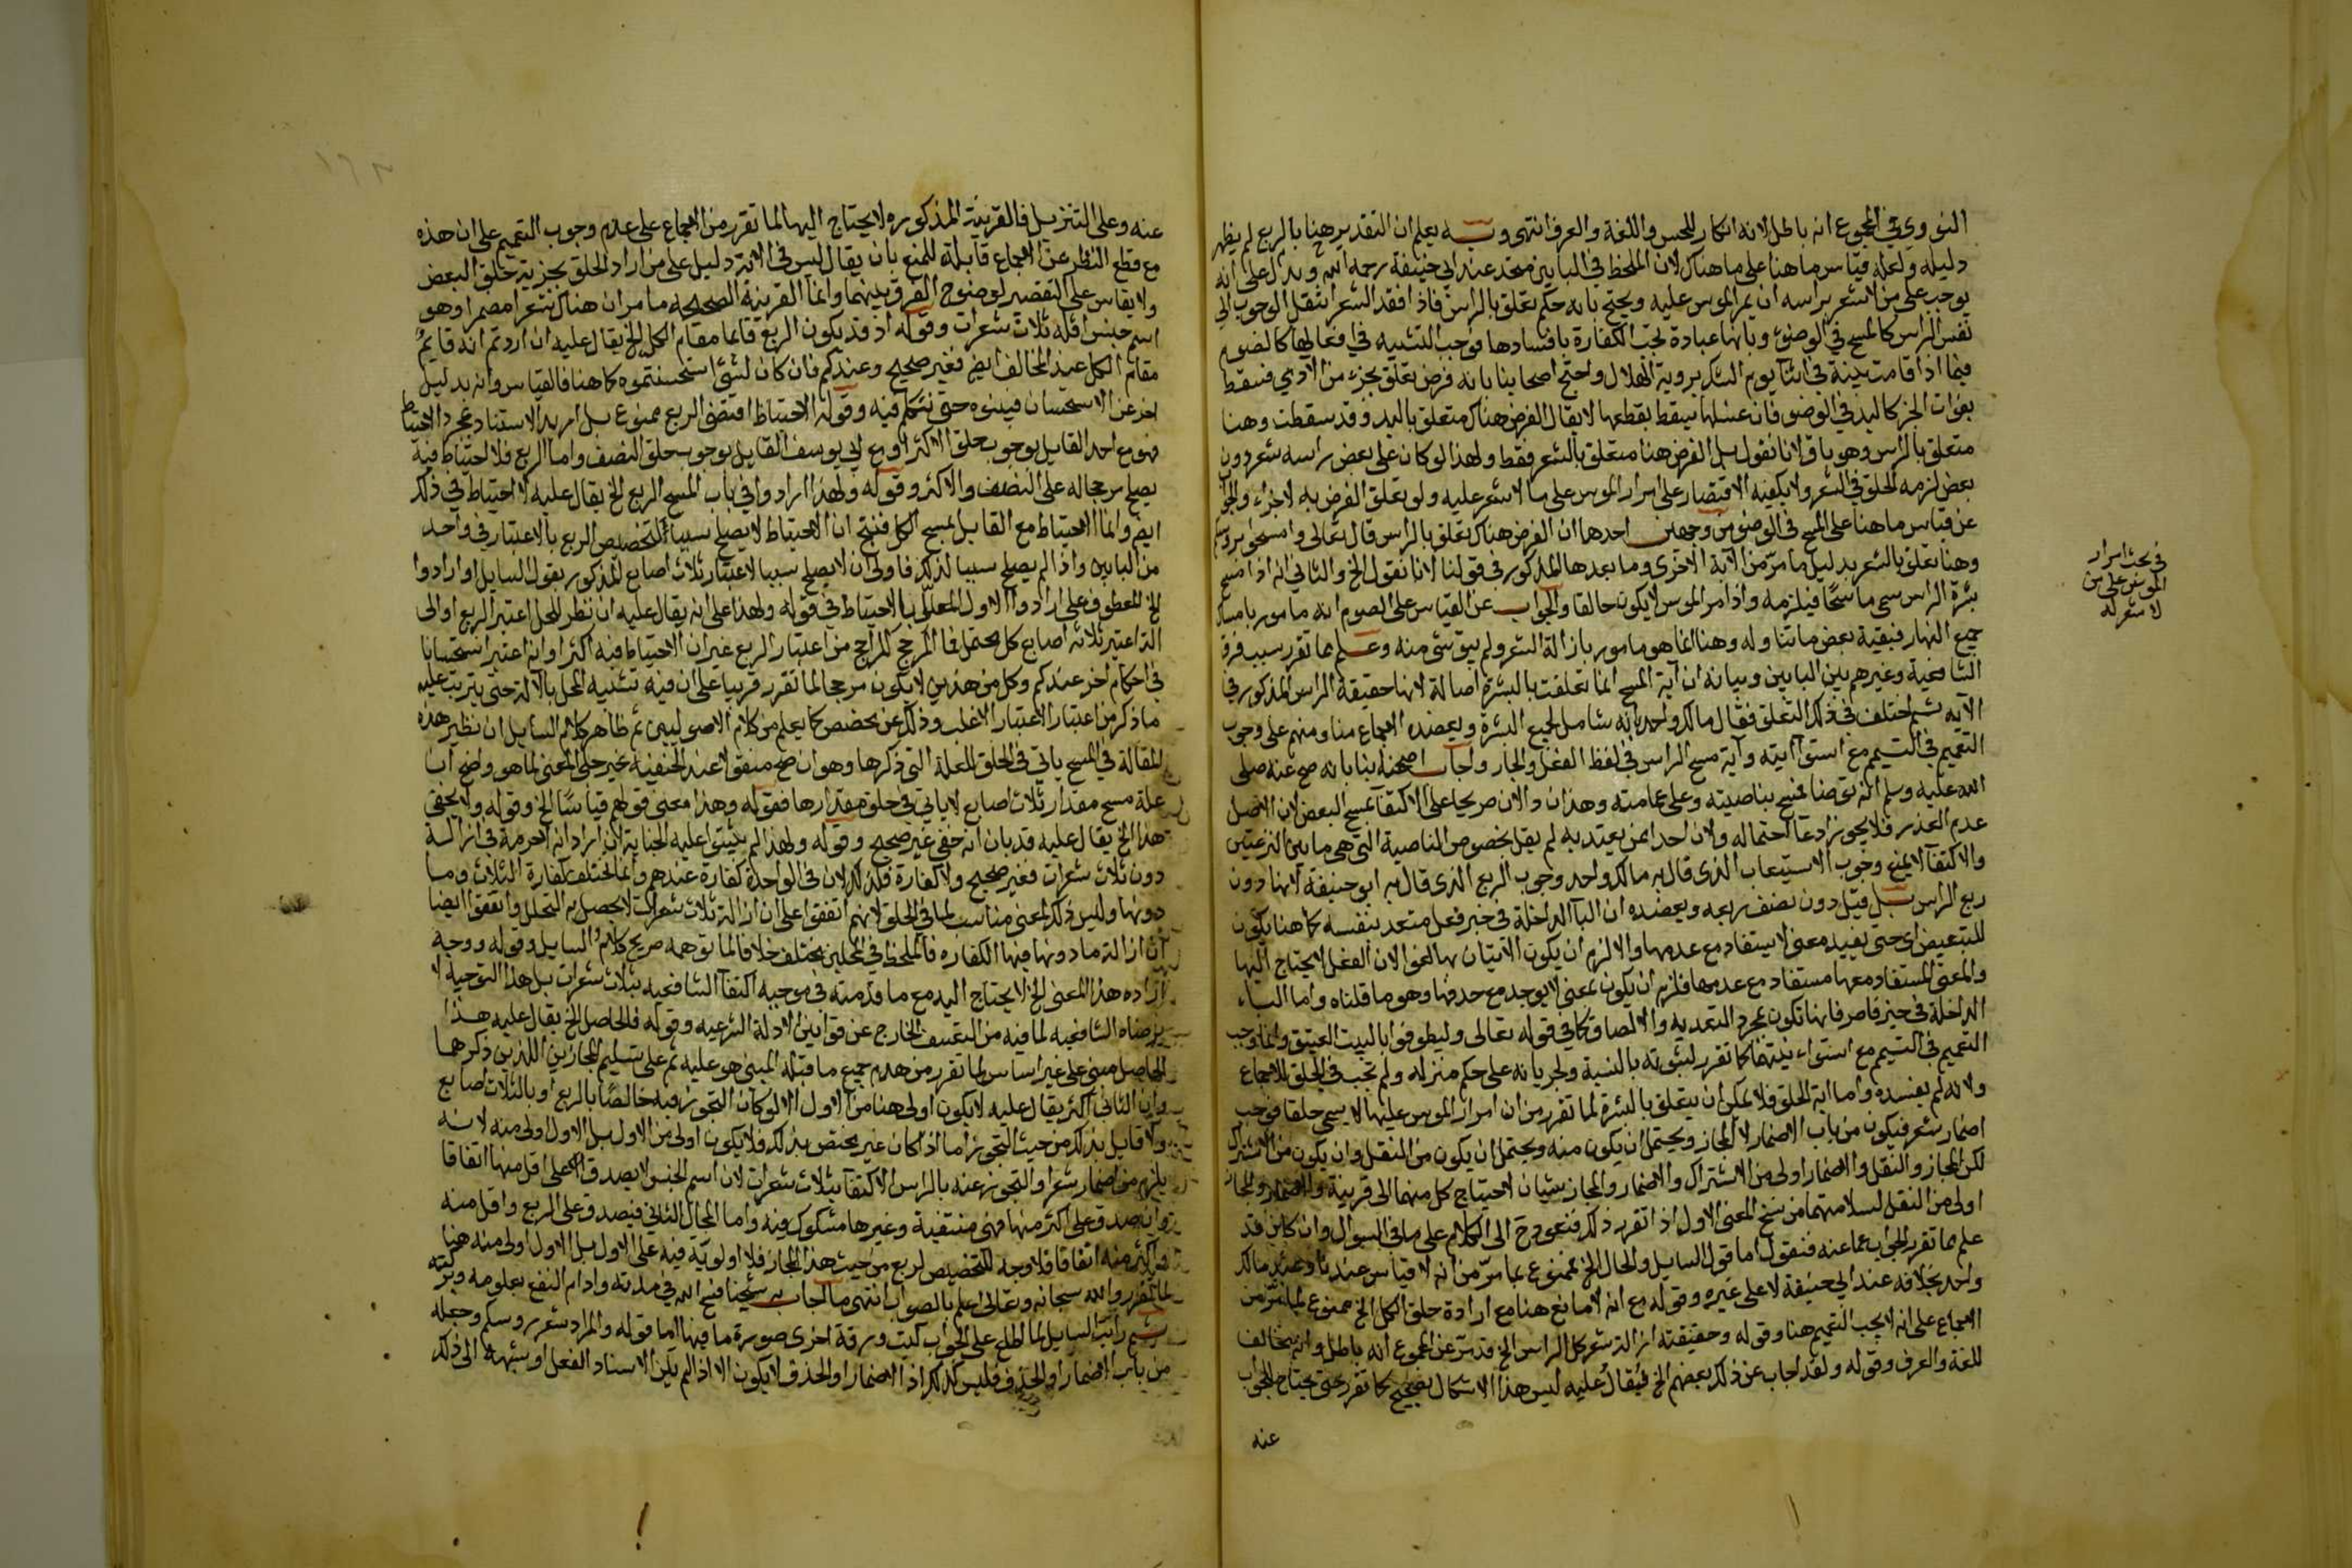 النووي في المجموع انه باطل لانه انكار للحس واللغة والعرف انتهى وبه يعلم ان التقدير هنا بالربع لم يظهر
دليله ولعله قياس ما هنا على ما هناك لان الملحظ في البابين متحد عند ابي حنيفة رحمه الله ويدل على انه
يوجب على من لا شعر براسه ان يمر الموس عليه ويحتج بانه حكم تعلق بالراس فاذا فقد الشعر انتقل الوجوب الى
نفس الراس كالمسح في الوضوء وبانها عبادة تجب الكفارة بافسادها فوجب التشبيه في افعالها كالصوم
فيما اذا قامت بينة في اثنا يوم الشك بروية الهلال واحتج اصحابنا بانه فرض تعلق بجزء من الادمي فسقط
بفوات الجز كاليد في الوضو فان غسلها يسقط بقطعها لا يقال الفرض هناك متعلق باليد وقد سقطت وهنا
متعلق بالراس وهو باق لانا نقول بل الفرض هنا متعلق بالشعر فقط ولهذا لو كان على بعض راسه شعر دون
بعض لزمه الحلق في الشعر ولا يكفيه الاقتصار على امرار الموس على ما لا شعر عليه ولو تعلق الفرض به لاجزاء والجواب
عن قياس ما هنا على المسح في الوضو من وجهين احدها ان الفرض هناك تعلق بالراس قال تعالى وامسحوا بروسكم
وهنا تعلق بالشعر بدليل ما مر من الآية الاخرى وما بعدها المذكور في قولنا لانا نقول الخ والثاني انه اذا مسح
بشرة الراس سمي ماسحا فيلزمه واذا مر الموس لا يكون حالقا والجواب عن القياس على الصوم انه مامور بامساك
جميع النهار فبقية بعض ما تناوله وهنا انما هو مامور بازالة الشعر ولم يبق شي منه وعلم مما تقرر سبب فرق
الشافعية وغيرهم بين البابين وبيانه ان آية المسح انما تعلقت بالبشرة اصالة لانها حقيقة الراس المذكور في
الآيه ثم اختلف في ذلك التعلق فقال مالك واحمد بانه شامل لجميع البشرة ويعضده الاجماع منا ومنهم على وجوب
التعميم في التيمم مع استوآ آيته وآية مسح الراس في لفظ الفعل والجار واجاب اصحابنا بانه صح عنه صلى
الله عليه وسلم انه توضا فمسح بناصيته وعلى عمامته وهذان دالان صريحا على الاكتفآ بمسح البعض لان الاصل
عدم العذر فلا يجوز ادعآ احتماله ولان احدا ممن يعتد به لم يقل بخصوص الناصية التي هي ما بين النزعتين
والاكتفآ لا يمنع وجوب الاستيعاب الذي قال به مالك واحمد وجوب الربع الذي قال به ابو حنيفة لانها دون
ربع الراس بل قيل دون نصف ربعه ويعضده ان البآ الداخلة في خبر فعل متعد بنفسه كما هنا يكون
للتبعيض اي حتى تفيد معنى لا يستفاد مع عدمها والا لزم ان يكون الاتيان بها لغوا لان الفعل لا يحتاج اليها
والمعنى المستفاد معها مستفاد مع عدمها فلزم ان يكون لمعنى لا يوجد مع حذفها وهو ما قلناه واما الباء
الداخلة في حيز قاصر فانها تكون لمجرد التعديه والالصاق كما في قوله تعالى وليطوفوا بالبيت العتيق وانما وجب
التعميم في التيمم مع استواء نيتهما كما تقرر لثبوته بالسنة ولجريانه على حكم منزله ولم تجب في الحلق للاجماع
ولانه لم يفسده واما اية الحلق فلا يمكن ان تتعلق بالبشرة لما تقرر من ان امرار الموس عليها لا يسمى حلقا فوجب
اضمار شعر فيكون من باب الاضمار لا المجاز ويحتمل ان يكون منه ويحتمل ان يكون من النقل وان يكون من الاشتراك
لكن المجاز والنقل والاضمار اولى من الاشتراك والاضمار والمجاز سيان لاحتياج كل منهما الى قرينة والاضمار والمجاز
اولى من النقل لسلامتهما من نسخ المعنى الاول اذا تقرر ذلك فنعود ح الى الكلام على ما في السوال وان كان قد
علم مما تقرر الجواب عما عنه فنقول اما قول السايل والحال الخ فممنوع بما مر من انه لا قياس عندنا وعند مالك
واحمد بخلافه عند ابي حنيفة لا على غيره وقوله مع انه لا مانع هنا مع ارادة حلق الكل الخ ممنوع بما مر من
الاجماع على انه لا يجب التعميم هنا وقوله وحقيقته ازالة شعر كل الراس الخ قد مر عن المجموع انه باطل وانه مخالف
للغة والعرف وقوله ولقد اجاب عن ذلك بعضهم الخ فيقال عليه ليس هذا الاشكال بصحيح كما تقرر حتى يحتاج للجواب
عنه
في بحث امرار
الموس على من
لا شعر له
عنه وعلى التنزيل فالقرينة المذكوره لا يحتاج اليها لما تقرر من الاجماع على عدم وجوب التعميم على ان هذه
مع قطع النظر عن الاجماع قابلة للمنع بان يقال ليس في الاية دليل على من اراد الحلق بجزيه حلق البعض
ولا يقاس على التقصير لوضوح الفرق بينهما وانما القرينة الصحيحه ما مر ان هناك شعرا مضمرا وهو
اسم جنس اقله ثلاث شعرات وقوله اذ قد يكون الربع قائما مقام الكل الخ يقال عليه ان اردتم انه قايم
مقام الكل عند المخالف ايضا فغير صحيح وعندكم فان كان لشئ استحسنتموه كما هنا فالقياس وانه بدليل
اخر عن الاستحسان فبينوه حتى نتكلم فيه وقوله الاحتياط اقتضى الربع ممنوع بل اريد الاستناد لمجرد الاحتياط
فهو مع احمد القايل بوجوب حلق الاكثر او مع ابي يوسف القايل بوجوب حلق النصف واما الربع فلا احتياط فيه
يصلح رجحاله على النصف والاكثر وقوله ولهذا ارادوا في باب المسح الربع الخ يقال عليه لا احتياط في ذلك
ايضا وانما الاحتياط مع القايل بمسح الكل فنتج ان الاحتياط لا يصلح سببا لتخصيص الربع بالاعتبار في واحد
من البابين واذا لم يصلح سببا لذلك فاولى ان لا يصلح سببا لاعتبار ثلاث اصابع المذكور بقول السايل او ارادوا
الخ المعطوف على ارادوا الاول المعلل بالاحتياط في قوله ولهذا على انه يقال عليه ان نظر للمحل اعتبر الربع او الى
الة اعتبر ثلاثه اصابع كل محتمل فما المرجح المراجح من اعتبار الربع غير ان الاحتياط فيه اكثر او انه اعتبر استحسانا
في احكام اخر عندكم وكل من هذين لا يكون مرجحا لما تقرر قريبا على ان فيه تشبيه المحل بالآلة حتى يترتب عليه
ما ذكر من اعتبار الاغلب وذلك عن محضض كما يعلم من كلام الاصوليين ثم ظاهر كلام السايل ان نظير هذه
المقالة في المسح ياتي في الحلق للعلة التي ذكرها وهو ان صح منقولا عند الحنفية غير جلي المعنى لما هو واضح ان
علة مسح مقدار ثلاث اصابع لا ياتي في حلق مقدارها فقوله وهذا معنى قولهم قياسا الخ وقوله ولا يخفى
هذا الخ يقال عليه قد بان انه خفي غير صحيح وقوله ولهذا لم يثبتوا عليه الجناية ان اراد انه لا حرمة في ازالة
دون ثلاث شعرات فغير صحيح ولا كفارة فكذلك لان في الواحدة كفارة عندهم وانما اختلف كفارة الثلاث وما
دونها وليس ذلك لمعنى مناسب لما في الحلق لانهم اتفقوا على ان ازالة ثلاث شعرات لا يحصل به التحلل واتفقوا ايضا
ان ازالة ما دونها فيها الكفاره فالملحظ في المحلين مختلف خلافا لما توهمه صريح كلام السايل وقوله ووجه
ازاده هذا المعنى الخ لا يحتاج اليه مع ما قدمته في موجبه اكتفآ الشافعيه بثلاث شعرات بل هذا التوجيه لا
يرضاه الشافعيه لما فيه من التعسف الخارج عن قوانين الادلة الشرعيه وقوله فالحاصل الخ يقال عليه هذا
الحاصل مبني على غير اساس لما تقرر من هدم جميع ما قبله المبني هو عليه ثم على تسليم المجازين اللذين ذكرهما
وان الثاني اكثر يقال عليه لا يكون اولى هنا من الاول الا لو كان التجوز فيه خالصا بالربع او بالثلاث اصابع
ولا قايل بذلك من حيث التجوز اما اذا كان غير مختص بذلك فلا يكون اولى من الاول بل الاول اولى منه لانه
يلزم من اضمار شعر او التجوز عنه بالراس الاكتفآ بثلاث شعرات لان اسم الجنس لا يصدق على اقل منها اتفاقا
وان صدق على اكثر منها فهي منتفية وغيرها مشكوك فيه واما المجاز الثاني فيصدق على الربع واقل منه
واكثر منه اتفاقا فلا وجه لتخصيص الربع من حيث هذا المجاز فلا اولوية فيه على الاول بل الاول اولى منه هنا
لما تقرر والله سبحانه وتعالى اعلم بالصواب انتهى ما اجاب به شيخنا فسح الله في مدته وادام النفع بعلومه وبركته
ثم رايت السايل لما اطلع على الجواب كتب ورقة اخرى صورة ما فيها اما قوله والمراد شعر روسكم وجعله
من باب الاضمار او الحذف فليس كذلك اذ الاضمار او الحذف لا يكون الا اذا لم يكن الاسناد الفعل او شبهه الى ذلك